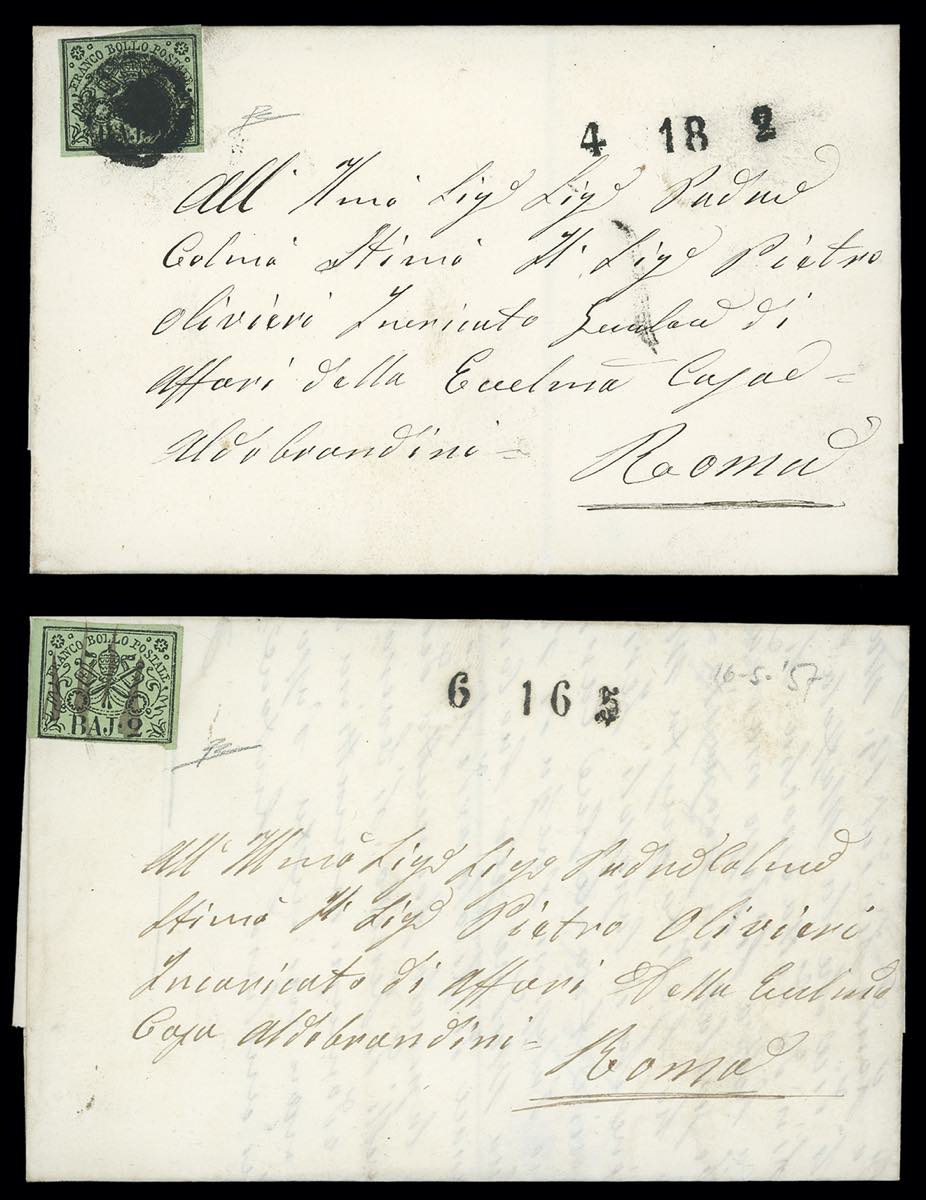 FRANCO BOLLO POSTALE
BAJ
4 18 2
All' Illmō Sigr̄ Sigr̄ Padne
Colmō Stimō Il Sigr̄ Pietro
Olivieri Incricato di
Affari della Eccelmā Casa =
Aldobrandini =
Roma
FRANCO BOLLO POSTALE
BAJ 2
6 16 5
16-5-'57
All' Illmō Sigr̄ Sigr̄ Padne Colmo
Stimō Il Sigr̄ Pietro Olivieri
Incaricato di Affari Della Eccelma
Casa Aldobrandini =
Roma